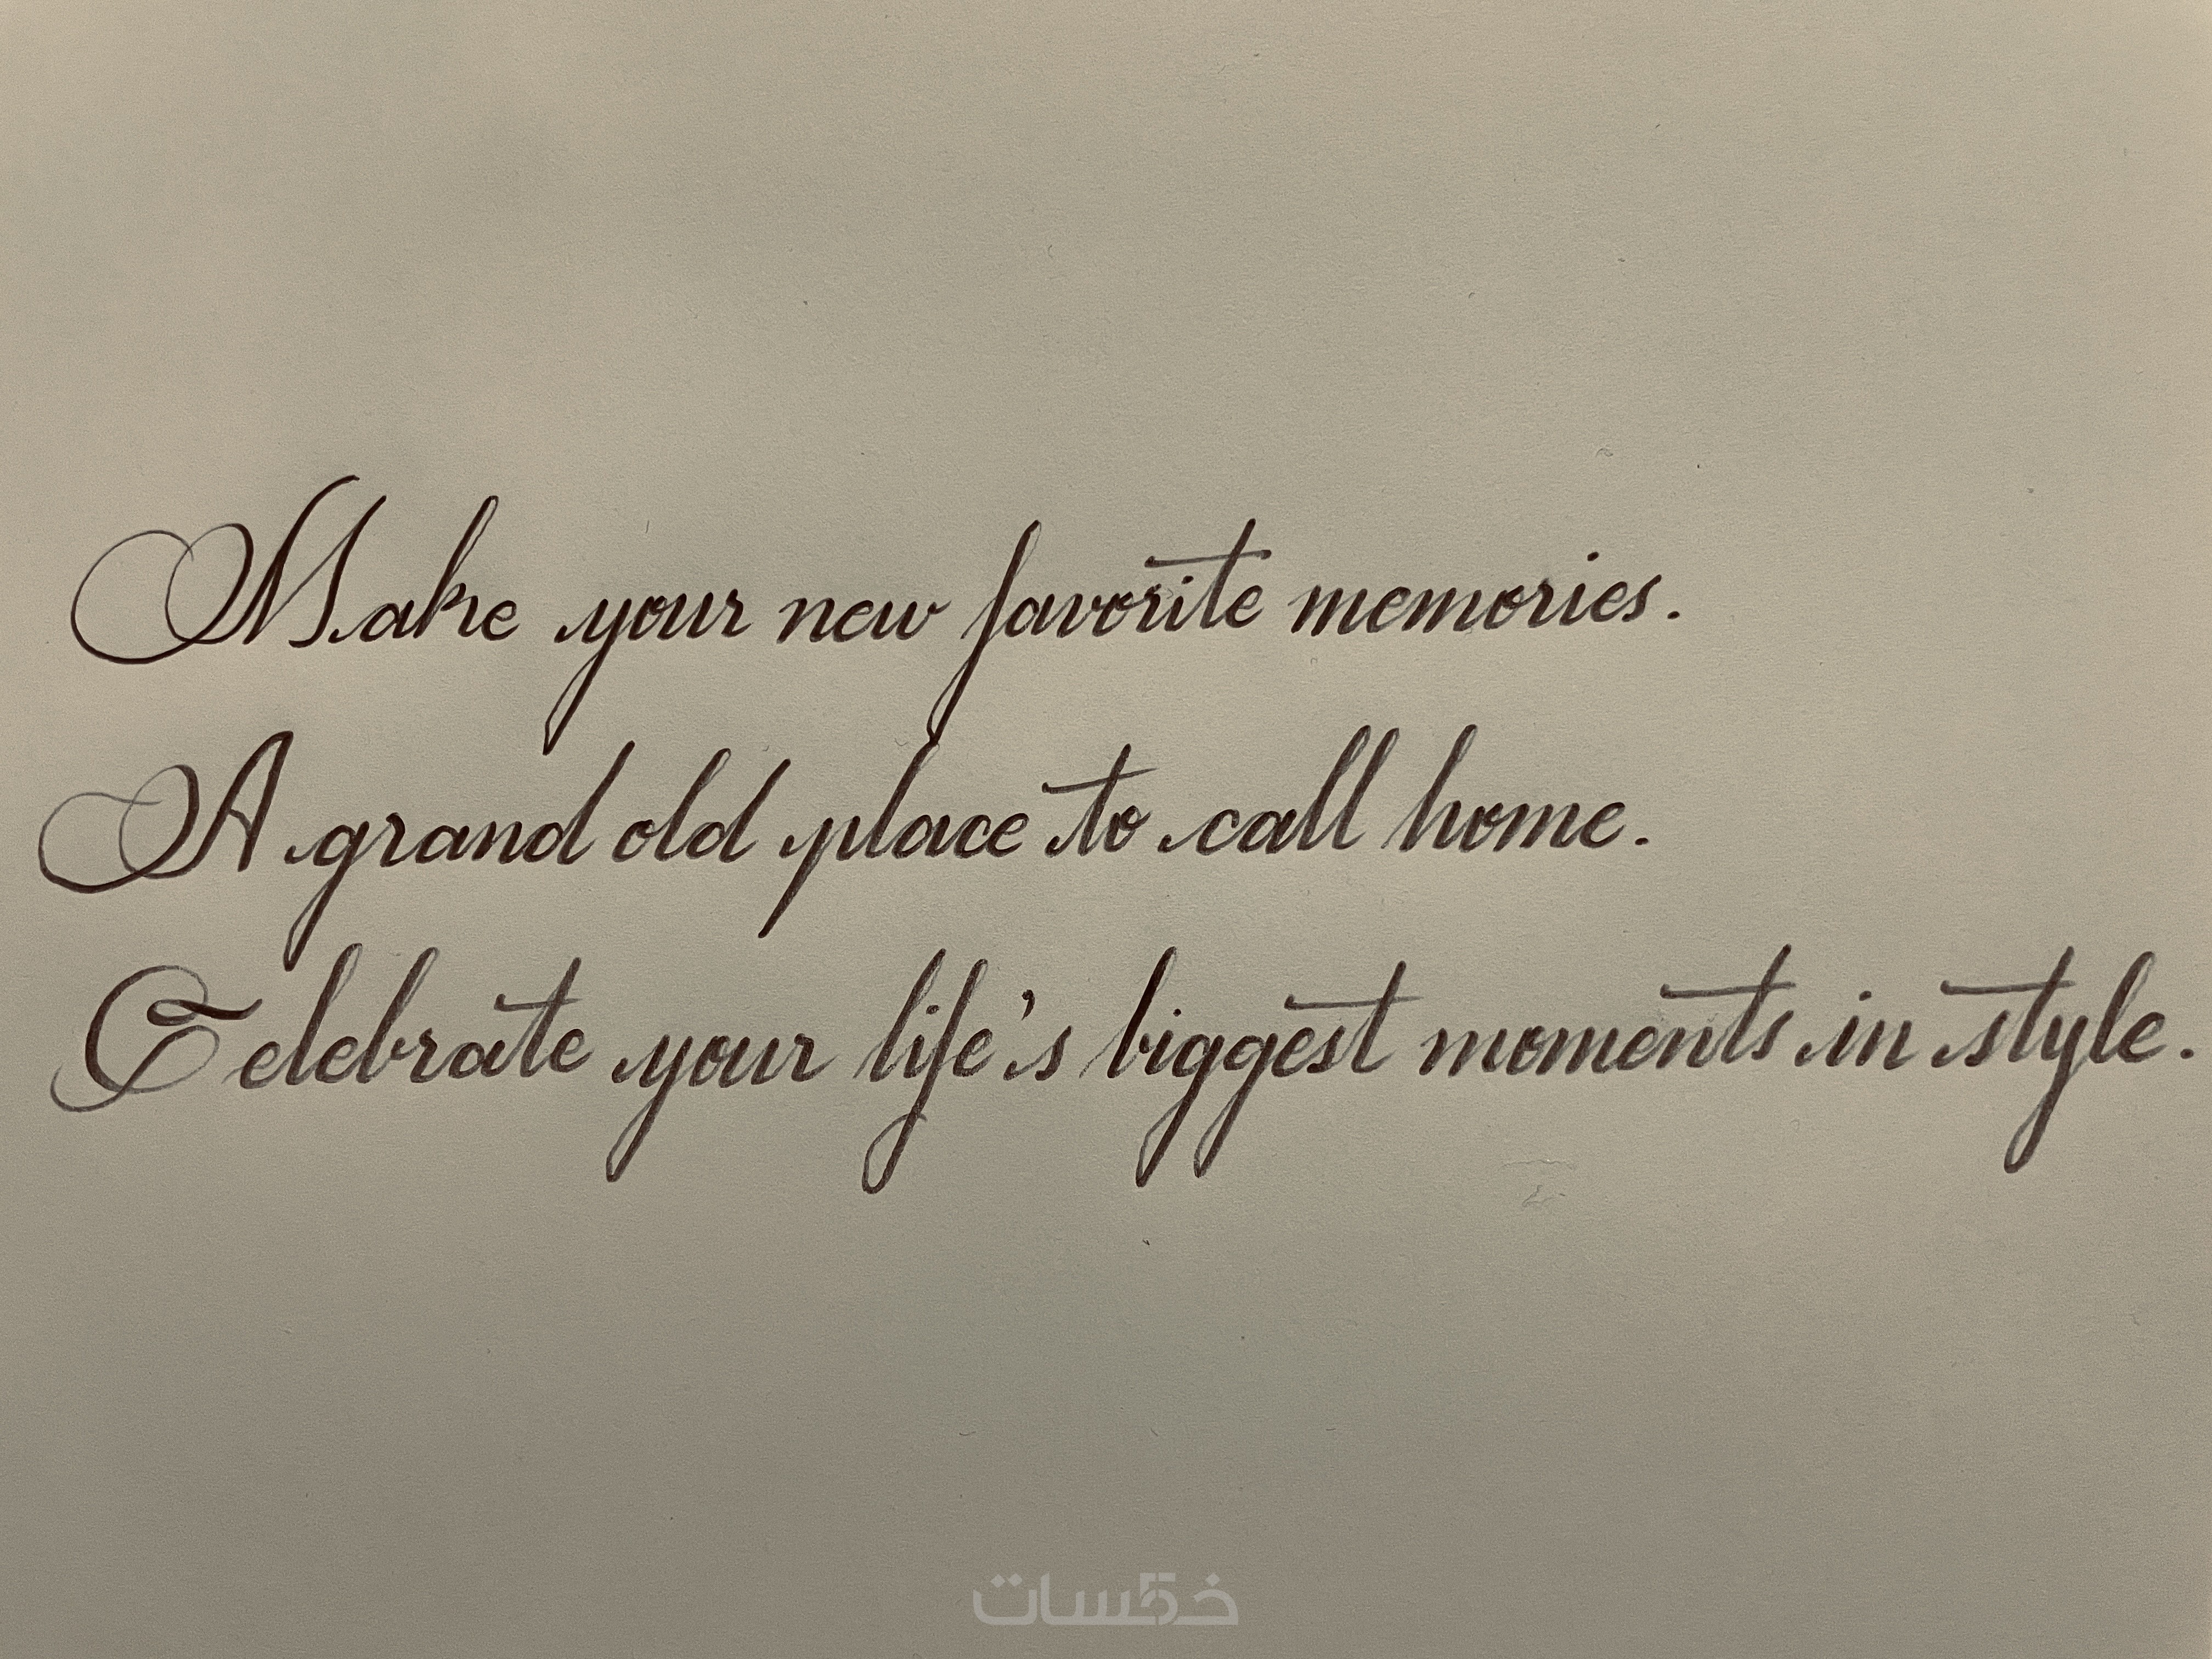 Make your new favorite memories.
A grand old place to call home.
Celebrate your life's biggest moments in style.
خمسات